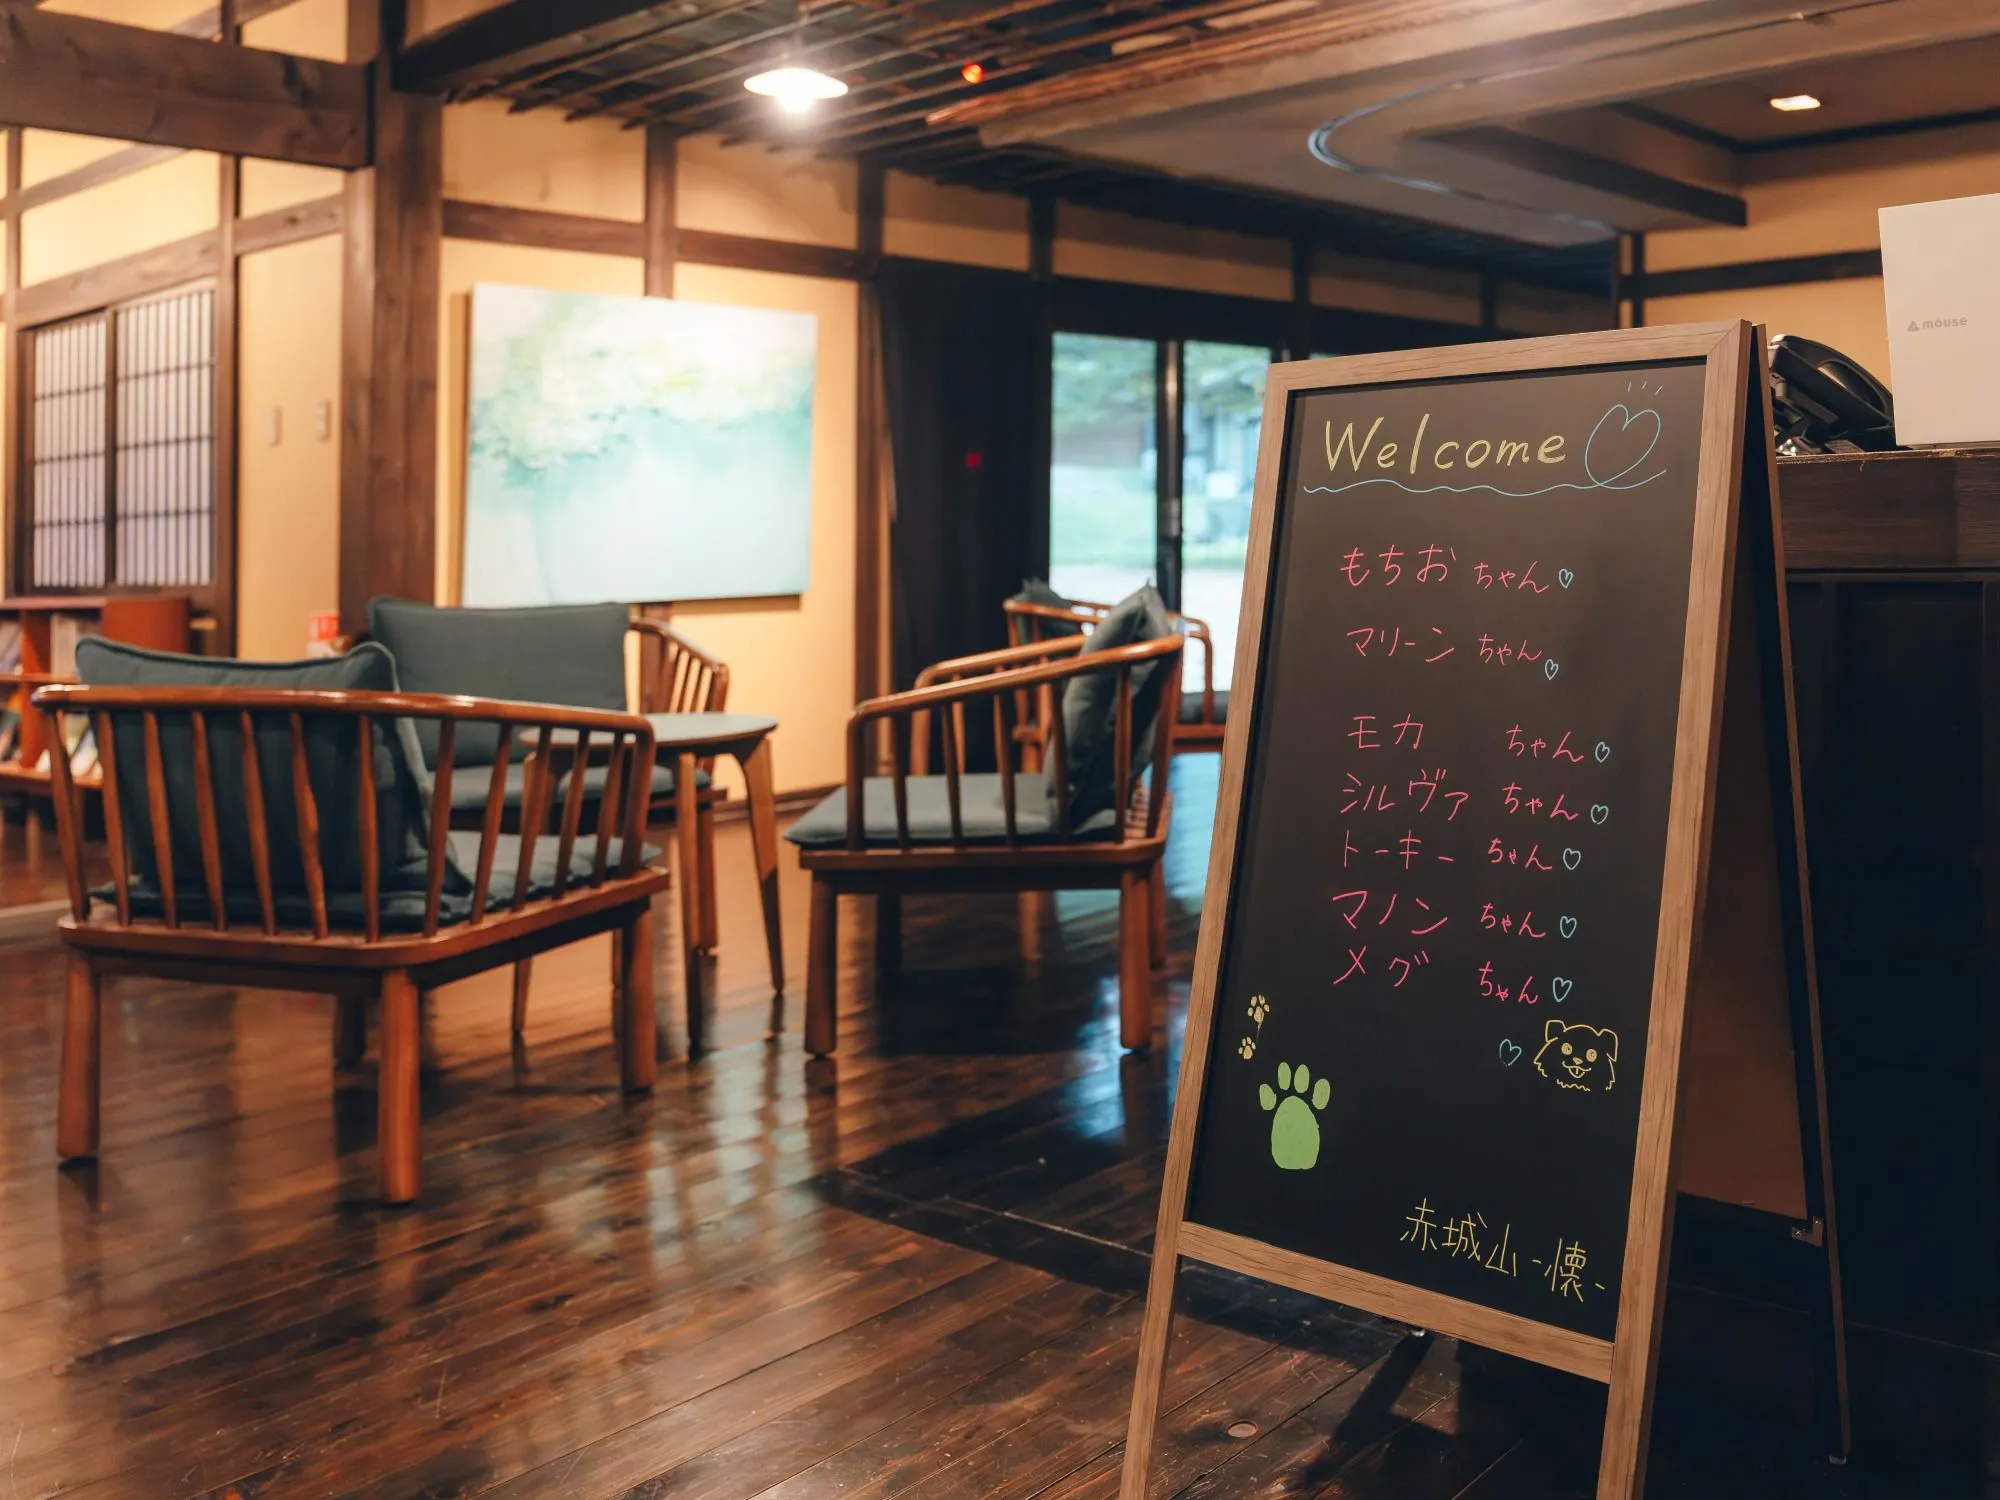 mouse
Welcome
もちおちゃん
マリーンちゃん
モカ ちゃん
シルヴァ ちゃん
トーキー ちゃん
マノン ちゃん
メグ ちゃん
赤城山-懐-